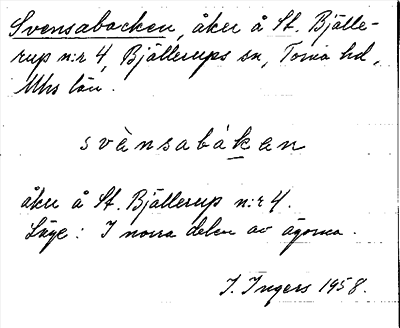 Svensabacken, åker å St. Bjälle-
rup n:r 4, Bjällerups sn, Torna hd,
Mhs län.
svènsabákan
åker å St. Bjällerup n:r 4.
Läge: I norra delen av ägorna.
I. Ingers 1958.